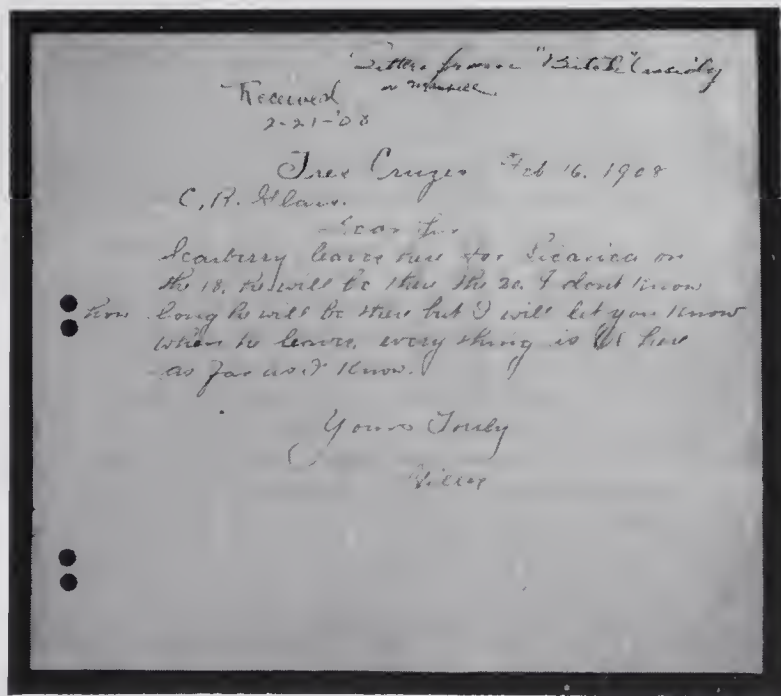 Letter from "Butch" Cassidy
or Maxwell
Received
2-21-'08
Tres Cruzes Feb 16, 1908
C. R. Glass.
Dear Sir
Scarberry leaves here for Sicasica on
the 18. he will be there the 20. I dont know
how long he will be there but I will let you know
when he leaves, every thing is OK here
as far as I know.
Yours Truly